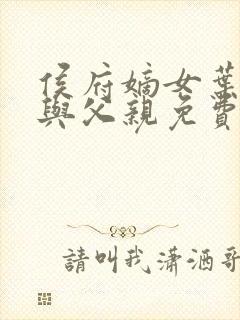 侯府嫡女葉
與父親免費
請叫我瀟洒哥